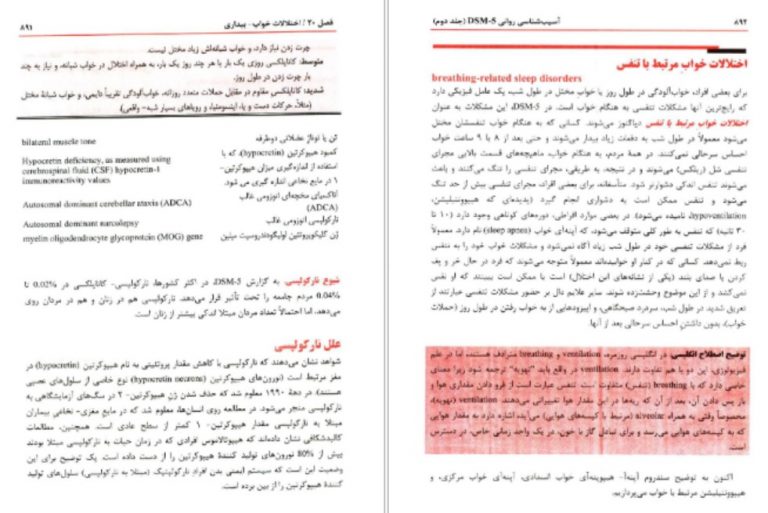 فصل ۲۰ / اختلالات خواب - بیداری
۸۹۱
چرت زدن نیاز دارد، و خواب شبانه‌اش زیادی مختل نیست.
متوسط: کاتاپلکسی روزی یک بار یا هر چند روز یک بار، به همراه اختلال در خواب شبانه، و نیاز به چند
بار چرت زدن در طول روز.
شدید: کاتاپلکسی مقاوم در مقابل حملات متعدد روزانه، خواب‌آلودگی تقریباً دایمی، و خواب شبانهٔ مختل
(مثلاً، حرکات دست و پا، اینسومنیا، و رویاهای بسیار شبه - واقعی)
bilateral muscle tone
تُن یا توناژ عضلانی دوطرفه
Hypocretin deficiency, as measured using
cerebrospinal fluid (CSF) hypocretin-1
immunoreactivity values
کمبود هیپوکرتین (hypocretin)، که با
استفاده از اندازه‌گیری میزان هیپوکرتین-
۱ در مایع نخاعی اندازه گیری می شود.
Autosomal dominant cerebellar ataxia (ADCA)
آتاکسیای مخچه‌ای اتوزومی غالب
(ADCA)
Autosomal dominant narcolepsy
نارکولپسی اتوزومی غالب
myelin oligodendrocyte glycoprotein (MOG) gene
ژن گلیکوپروتئین اولیگودندروسیت میلین
شیوع نارکولپسی. به گزارش DSM-5، در اکثر کشورها، نارکولپسی- کاتاپلکسی در 0.02% تا
0.04% مردم جامعه را تحت تأثیر قرار می‌دهد. نارکولپسی هم در زنان و هم در مردان روی
می‌دهد، اما احتمالاً تعداد مردان مبتلا اندکی بیشتر از زنان است.
علل نارکولپسی
شواهد نشان می‌دهند که نارکولپسی با کاهش مقدار پروتئینی به نام هیپوکرتین (hypocretin) در
مغز مرتبط است (نورون‌های هیپوکرتین (hypocretin neurons) نوع خاصی از سلول‌های عصبی
هستند). در دههٔ ۱۹۹۰ معلوم شد که حذف شدن ژن هیپوکرتین- ۲ در سگ‌های آزمایشگاهی به
نارکولپسی منجر می‌شود. در مطالعه روی انسان‌ها، معلوم شد که در مایع مغزی- نخاعی بیماران
مبتلا به نارکولپسی مقدار هیپوکرتین- ۱ کمتر از سطح عادی است. همچنین، مطالعات
کالبدشکافی نشان داده‌اند که هیپوتالاموس افرادی که در زمان حیات به نارکولپسی مبتلا بودند
بیش از 80% نورون‌های تولید کنندهٔ هیپوکرتین را از دست داده است. یک توضیح برای این
وضعیت این است که سیستم ایمنی بدن افرادِ نارکولپتیک (مبتلا به نارکولپسی) سلول‌های تولید
کنندهٔ هیپوکرتین را از بین برده است.
۸۹۲
آسیب‌شناسی روانی DSM-5 (جلد دوم)
اختلالات خوابِ مرتبط با تنفس
breathing-related sleep disorders
برای بعضی افراد، خواب‌آلودگی در طول روز یا خواب مختل در طول شب، یک عامل فیزیکی دارد
که رایج‌ترین آنها مشکلات تنفسی به هنگام خواب است. در DSM-5، این مشکلات به عنوان
اختلالات خواب مرتبط با تنفس دیاگنوز می‌شوند. کسانی که به هنگام خواب تنفسشان مختل
می‌شود معمولاً در طول شب به دفعات زیاد بیدار می‌شوند و حتی بعد از ۸ یا ۹ ساعت خواب
احساس سرحالی نمی‌کنند. در همهٔ مردم، به هنگام خواب، ماهیچه‌های قسمت بالایی مجرای
تنفسی شل (ریلکس) می‌شوند و در نتیجه، به طریقی، مجرای تنفسی را تنگ می‌کنند و باعث
می‌شوند تنفس اندکی دشوارتر شود. متأسفانه، برای بعضی افراد، مجرای تنفسی بیش از حد تنگ
می‌شود و تنفس ممکن است به دشواری انجام گیرد (پدیده‌ای که هیپوونتیلیشن،
hypoventilation، نامیده می‌شود). در بعضی موارد افراطی، دوره‌های کوتاهی وجود دارد (۱۰ تا
۳۰ ثانیه) که تنفس به طور کلی متوقف می‌شود، که آپنه‌ای خواب (sleep apnea) نام دارد. معمولاً
فرد از مشکلات تنفسی خود در طول شب زیاد آگاه نمی‌شود و مشکلات خواب خود را به تنفس
ربط نمی‌دهد. کسانی که در کنار او خوابیده‌اند معمولاً متوجه می‌شوند که فرد در حال خر و پف
کردن با صدای بلند (یکی از نشانه‌های این اختلال) است یا ممکن است ببینند که او نفس
نمی‌کشد و از این موضوع وحشت‌زده شوند. سایر علایم دال بر حضور مشکلات تنفسی عبارتند از
تعریق شدید در طول شب، سردرد صبحگاهی، و اپیزودهایی از به خواب رفتن در طول روز (حملات
خواب)، بدون داشتنِ احساس سرحالی بعد از آنها.
توضیح اصطلاح انگلیسی: در انگلیسی روزمره، ventilation و breathing مترادف هستند، اما در علم
فیزیولوژی، این دو با هم تفاوت دارند. ventilation در واقع باید "تهویه" ترجمه شود زیرا معنای
خاصی دارد که با breathing (تنفس) متفاوت است. تنفس عبارت است از فرو دادن مقداری هوا و
باز پس دادن آن، بعد از آن که ریه‌ها در این مقدار هوا تغییراتی می‌دهند. ventilation (تهویه)،
مخصوصاً وقتی به همراه alveolar (مرتبط با کیسه‌های هوایی) می‌آید، اشاره دارد به مقدار هوایی
که به کیسه‌های هوایی می‌رسد و برای تبادل گاز با خون، در یک واحد زمانی خاص، در دسترس
است.
اکنون به توضیح سندروم آپنه‌آ- هیپوپنه‌آی خواب انسدادی، آپنه‌آی خواب مرکزی، و
هیپوونتیلیشن مرتبط با خواب می‌پردازیم.